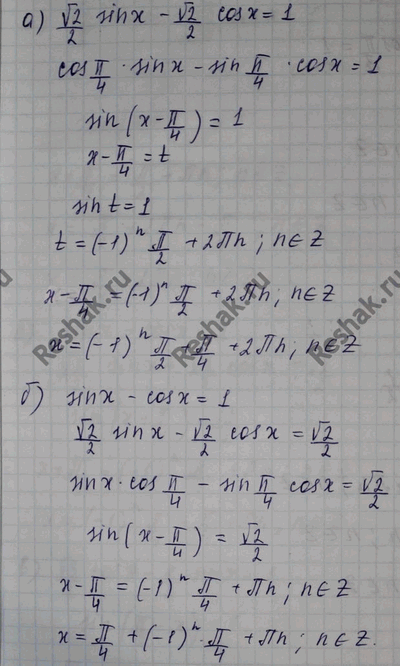 а) √2/2 sinx - √2/2 cosx = 1
cos π/4 · sinx - sin π/4 · cosx = 1
sin(x - π/4) = 1
x - π/4 = t
sin t = 1
t = (-1)ⁿ π/2 + 2πn; n∈Z
x - π/4 = (-1)ⁿ π/2 + 2πn; n∈Z
x = (-1)ⁿ π/2 + π/4 + 2πn; n∈Z
б) sinx - cosx = 1
√2/2 sinx - √2/2 cosx = √2/2
sinx · cos π/4 - sin π/4 cosx = √2/2
sin(x - π/4) = √2/2
x - π/4 = (-1)ⁿ π/4 + πn; n∈Z
x = π/4 + (-1)ⁿ · π/4 + πn; n∈Z.
Reshak.ru
Reshak.ru
Reshak.ru